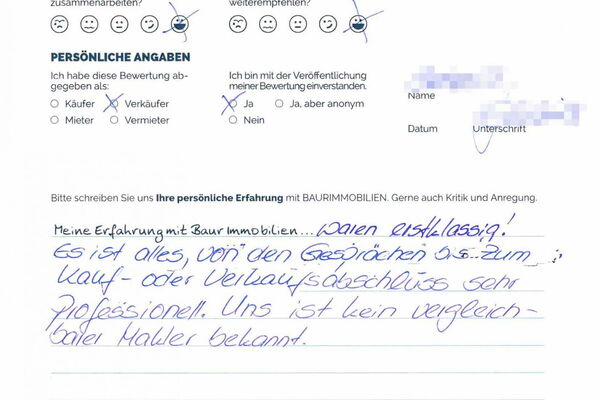 zusammenarbeiten?
weiterempfehlen?
PERSÖNLICHE ANGABEN
Ich habe diese Bewertung ab-
gegeben als:
Käufer Verkäufer
Mieter Vermieter
Ich bin mit der Veröffentlichung
meiner Bewertung einverstanden.
Ja Ja, aber anonym
Nein
Name
Datum Unterschrift
Bitte schreiben Sie uns Ihre persönliche Erfahrung mit BAURIMMOBILIEN. Gerne auch Kritik und Anregung.
Meine Erfahrung mit Baur Immobilien... waren erstklassig!
Es ist alles, von den Gesprächen bis zum
Kauf- oder Verkaufsabschluss sehr
Professionell. Uns ist kein vergleich-
barer Makler bekannt.